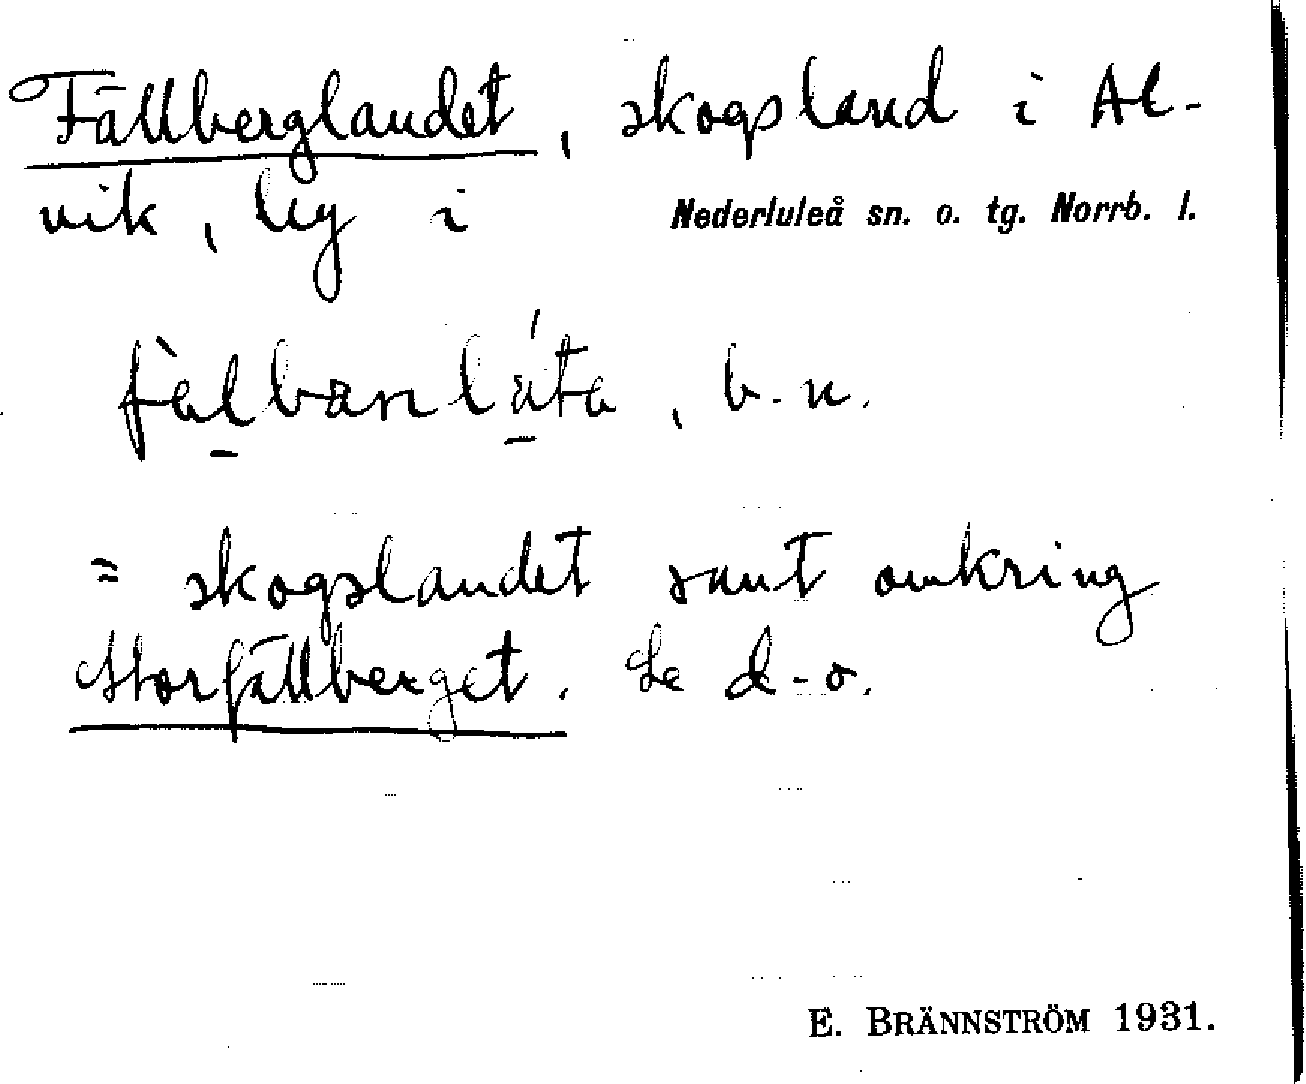 Fällberglandet, skogsland i Al-
vik, lig i Nederluleå sn. o. tg. Norrb. l.
b. n.
= skogslandet runt omkring
Storfällberget. Se d-o.
E. BRÄNNSTRÖM 1931.